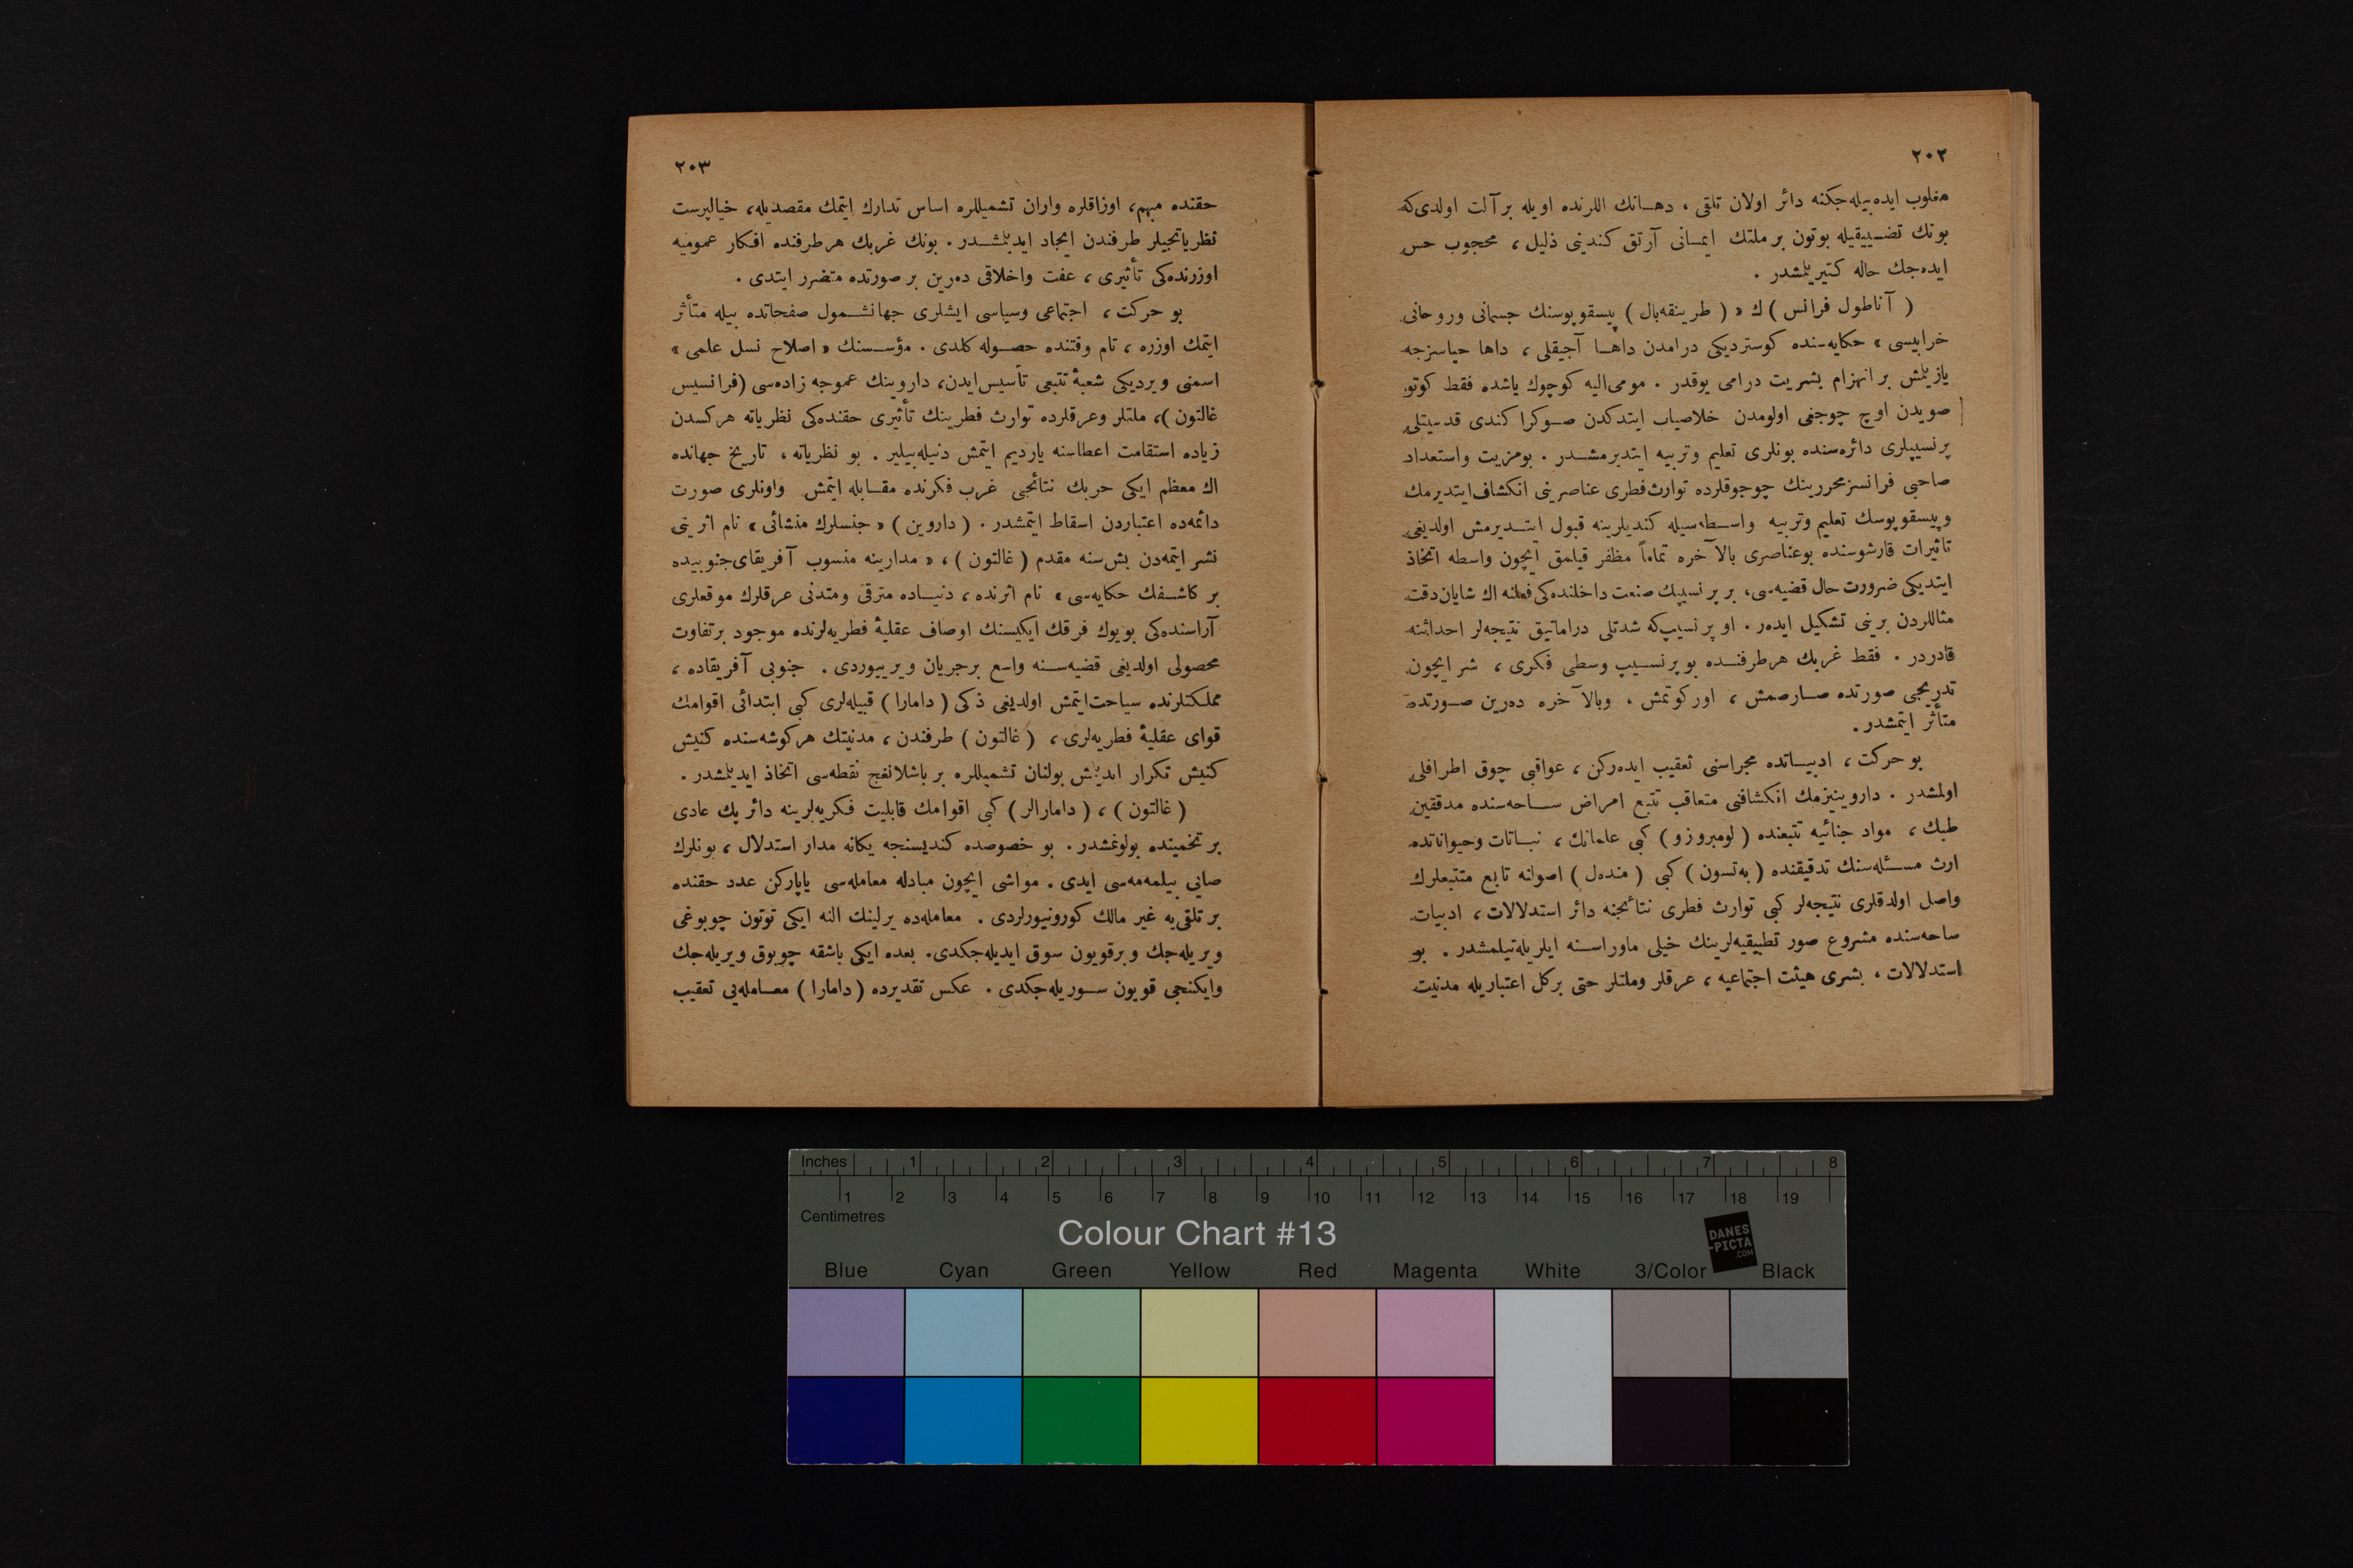 ٢٠٢
مغلوب ايده‌بيله‌جكنه دائر اولان تلقى ، دهـانك اللرنده اويله بر آلت اولدى‌كه
بونك تضـييقيله بوتون بر ملتك ايمـانى آرتق كندينى ذليل ، محجوب حس
ايده‌جك حاله كتيريلمشدر .
( آناطول فرانس ) ك « ( طرينقه‌بال ) پيسقوپوسنك جسمانى وروحانى
خرابيسى » حكايه‌سنده كوسترديكى درامدن داهـا آجيقلى ، داها حياسزجه
يازيلمش بر انهزام بشريت درامى يوقدر . مومى‌اليه كوچوك ياشده فقط كوتو
صويدن اوچ چوجغى اولومدن خلاصياب ايتدكدن صـوكرا كندى قدسيتلى
پرنسيپلرى دائره‌سنده بونلرى تعليم وتربيه ايتديرمشـدر . بومزيت واستعداد
صاحبى فرانسزمحررينك چوجوقلرده توارث‌فطرى عناصرينى انكشاف‌ايتديرمك
وپيسقوپوسك تعليم وتربيه واسـطه‌سيله كنديلرينه قبول ايتـديرمش اولديغى
تأثيرات قارشوسنده بوعناصرى بالآخره تماماً مظفر قيلمق ايچون واسطه اتخاذ
ايتديكى ضرورت حال قضيه‌سى، بر پرنسيپك صنعت داخلنده‌كى فعلنه اك شايان‌دقت
مثاللردن برينى تشكيل ايده‌ر . او پرنسيپ‌كه شدتلى دراماتيق نتيجه‌لر احداثنه
قادردر . فقط غربك هرطرفنـده بو پرنسـيپ وسطى فكرى ، شر ايچون
تدريجى صورتده صـارصمش ، اوركوتمش . وبالآخره ده‌رين صـورتده
متأثر ايتمشدر .
بو حركت ، ادبيـاتده مجراسنى تعقيب ايده‌ركن ، عواقبى چوق اطرافلى
اولمشدر . داروينيزمك انكشافنى متعاقب تتبع امراض سـاحه‌سنده مدققين
طبك ، مواد جنائيه تتبعنده ( لومبروزو ) كبى علمانك ، نبـاتات وحيواناتده
ارث مسـئله‌سنك تدقيقنده ( به‌تسون ) كبى ( منده‌ل ) اصوانه تابع متتبعلرك
واصل اولدقلرى نتيجه‌لر كبى توارث فطرى نتائجنه دائر استدلالات ، ادبيات
ساحه‌سنده مشروع صور تطبيقيه‌لرينك خيلى ماوراسـنه ايلريله‌تيلمشدر . بو
استدلالات ، بشرى هيئت اجتماعيه ، عرقلر وملتلر حتى بركل اعتباريله مدنيت
٢٠٣
حقنده مبهم، اوزاقلره واران تشميللره اساس تدارك ايتمك مقصديله، خيالپرست
نظرياتجيلر طرفندن ايجاد ايديلمشـدر . بونك غربك هرطرفنده افكار عموميه
اوزرنده‌كى تأثيرى ، عفت واخلاقى ده‌رين بر صورتده متضرر ايتدى .
بو حركت ، اجتماعى وسياسى ايشلرى جهانشـمول صفحاتده بيله متأثر
ايتمك اوزره ، تام وقتنده حصـوله كلدى . مؤسـسنك « اصلاح نسل علمى »
اسمنى ويرديكى شعبۀ تتبعى تأسيس‌ايدن، داروينك عموجه زاده‌سى (فرانسيس
غالتون )، ملتلر وعرقلرده توارث فطرينك تأثيرى حقنده‌كى نظرياته هركسدن
زياده استقامت اعطاسنه يارديم ايتمش دنيله‌بيلير . بو نظرياته ، تاريخ جهانده
اك معظم ايكى حربك نتائجى غرب فكرنده مقـابله ايتمش واونلرى صورت
دائمه‌ده اعتباردن اسقاط ايتمشدر . ( داروين ) « جنسلرك منشائى » نام اثرينى
نشر ايتمه‌دن بش‌سنه مقدم ( غالتون ) ، « مدارينه منسوب آفريقاى‌جنوبيده
بر كاشـفك حكايه‌سى » نام اثرنده ، دنيـاده مترقى ومتدنى عرقلرك موقعلرى
آراسنده‌كى بويوك فرقك ايكيسنك اوصاف عقليۀ فطريه‌لرنده موجود برتفاوت
محصولى اولديغى قضيه‌سـنه واسع برجريان ويرييوردى . جنوبى آفريقاده ،
مملكتلرنده سياحت‌ايتمش اولديغى ذكى ( دامارا ) قبيله‌لرى كبى ابتدائى اقوامك
قواى عقليۀ فطريه‌لرى ، ( غالتون ) طرفندن ، مدنيتك هركوشه‌سنده كنيش
كنيش تكرار ايديلمش بولنان تشميللره بر باشلانغج نقطه‌سى اتخاذ ايديلمشدر .
( غالتون ) ، ( دامارالر ) كبى اقوامك قابليت فكريه‌لرينه دائر پك عادى
بر تخمينده بولونمشدر . بو خصوصده كنديسنجه يكانه مدار استدلال ، بونلرك
صايى بيلمه‌مه‌سى ايدى . مواشى ايچون مبادله معامله‌سى ياپاركن عدد حقنده
بر تلقى‌يه غير مالك كورونيورلردى . معامله‌ده يرلينك النه ايكى توتون چوبوغى
ويريله‌جك وبرقويون سوق ايديله‌جكدى. بعده ايكى باشقه چوبوق ويريله‌جك
وايكنجى قويون سـوريله‌جكدى . عكس تقديرده ( دامارا ) معـامله‌يى تعقيب
Inches 1 2 3 4 5 6 7 8
1 2 3 4 5 6 7 8 9 10 11 12 13 14 15 16 17 18 19
Centimetres
Colour Chart #13
DANES
-PICTA
.COM
Blue Cyan Green Yellow Red Magenta White 3/Color Black